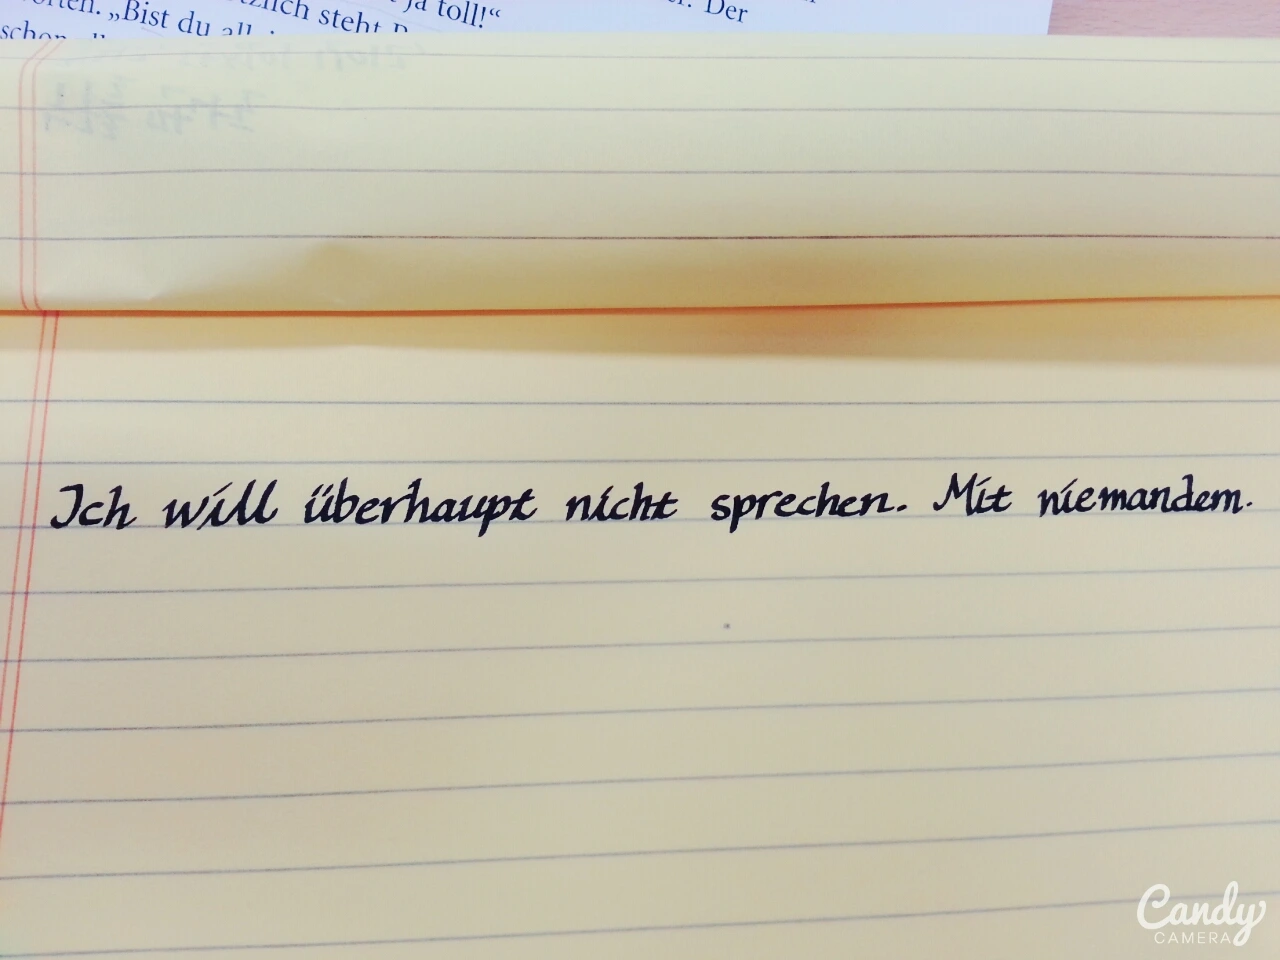 „Bist du
steht
ja toll!“
Der
schon
Ich will überhaupt nicht sprechen. Mit niemandem.
Candy
CAMERA